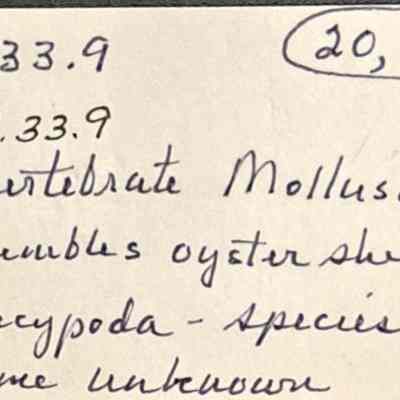 33.9 20,
.33.9
ertebrate Mollus
umbles oyster she
ecypoda - species
me unknown